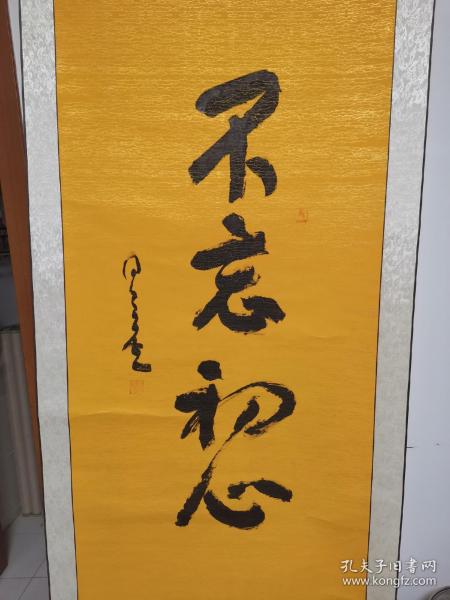 不忘初心
孔夫子旧书网
www.kongfz.com